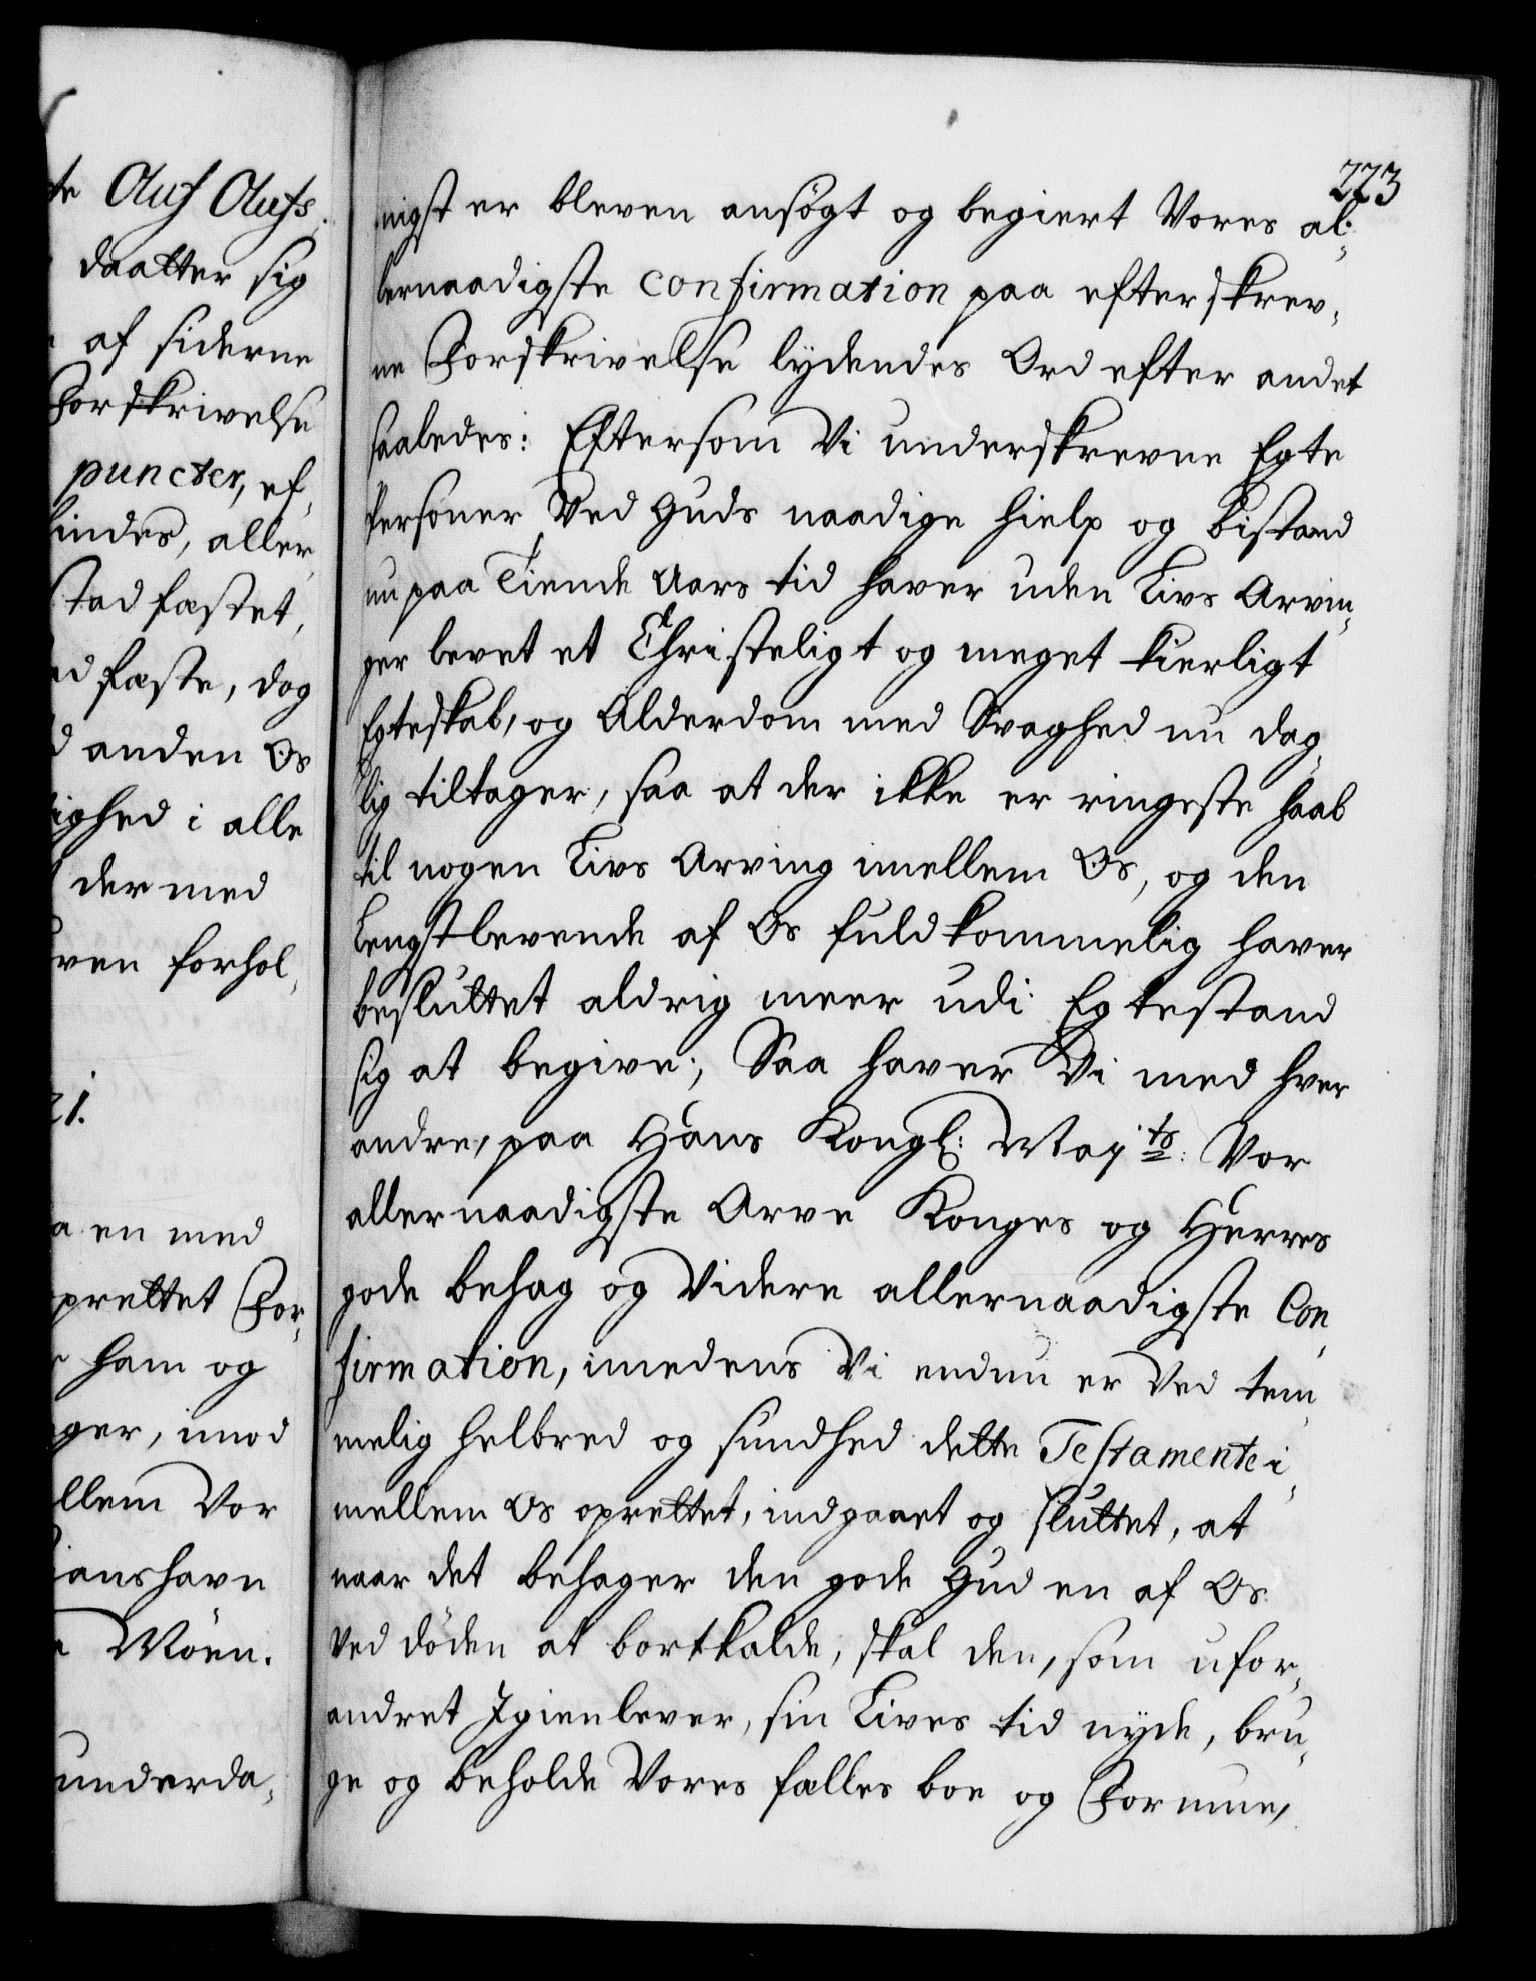 te Oluf Olufs
daatter sig
af siderne
Forskrivelse
puncter, ef-
findes, aller
stadfæstet,
ad fæste, dog
d anden Os
ighed i alle
der med
ven forhol-
21.
a en med
prettet For-
ham og
ger, imod
llem Vor
ianshavn
Möen.
underda-
223
nigst er bleven ansøgt og begiert Vores al-
lernaadigste confirmation paa efterskrev-
ne Forskrivelse lydendes Ord efter andet
saaledes: Eftersom Vi underskrevne Egte
Personer Ved Guds naadige hielp og bistand
nu paa Tiende Aars tid haver uden Livs Arvin-
ger levet et Christeligt og meget kierligt
Egteskab, og Alderdom med Svaghed nu dag-
lig tiltager, saa at der ikke er ringeste haab
til nogen Livs Arving imellem Os, og den
Lengstlevende af Os fuldkommelig haver
besluttet aldrig meer udi Egtestand
sig at begive; Saa haver Vi med hver
andre, paa Hans Kongl: Mayts: Vor
allernaadigste Arve Konges og Herres
gode behag og Videre allernaadigste Con-
firmation, imedens Vi endnu er Ved tem-
melig helbred og sundhed dette Testamente i-
mellem Os oprettet, indgaaet og sluttet, at
naar det behager den gode Gud en af Os
Ved döden at bortkalde, skal den, som ufor-
andret Igienlever, sin Lives tid nyde, bru-
ge og beholde Vores fælles boe og Formue,